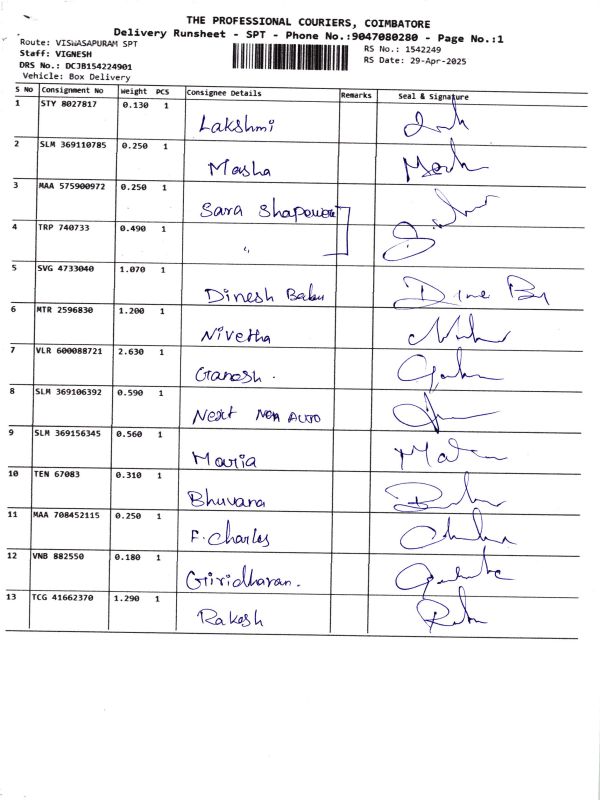 THE PROFESSIONAL COURIERS, COIMBATORE
Delivery Runsheet - SPT - Phone No.:9047080280 - Page No.:1
Route: VISWASAPURAM SPT
RS No.: 1542249
Staff: VIGNESH
RS Date: 29-Apr-2025
DRS No.: DCJB154224901
Vehicle: Box Delivery
S No Consignment No Weight PCS Consignee Details Remarks Seal & Signature
1 STY 8027817 0.130 1 Lakshmi
2 SLM 369110785 0.250 1 Masha
3 MAA 575900972 0.250 1 Sara
4 TRP 740733 0.490 1 "
5 SVG 4733040 1.070 1 Dinesh Babu
6 MTR 2596830 1.200 1 Nivetha
7 VLR 600088721 2.630 1 Ganesh.
8 SLM 369106392 0.590 1 Next AUTO
9 SLM 369156345 0.560 1 Maria
10 TEN 67083 0.310 1 Bhuvana
11 MAA 708452115 0.250 1 F. Charles
12 VNB 882550 0.180 1 Giridharan.
13 TCG 41662370 1.290 1 Rakesh